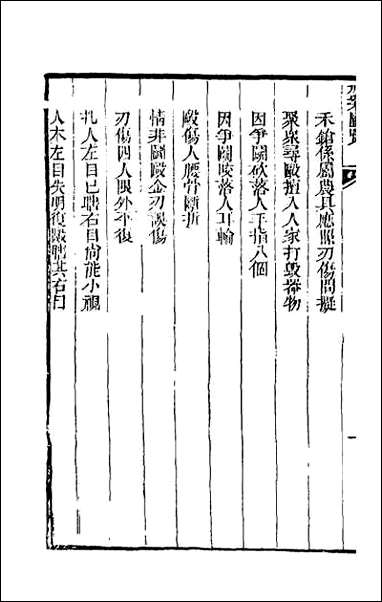 禾鎗係屬農具應照刃傷問擬
聚眾尋毆擅入人家打毀器物
因爭鬪砍落人手指八個
因爭鬪咬落人耳輪
毆傷人腰骨斷折
情非鬪毆金刃誤傷
刃傷四人限外平復
扎人左目已瞎右目尚能小視
人本左目失明復毆瞎其右目